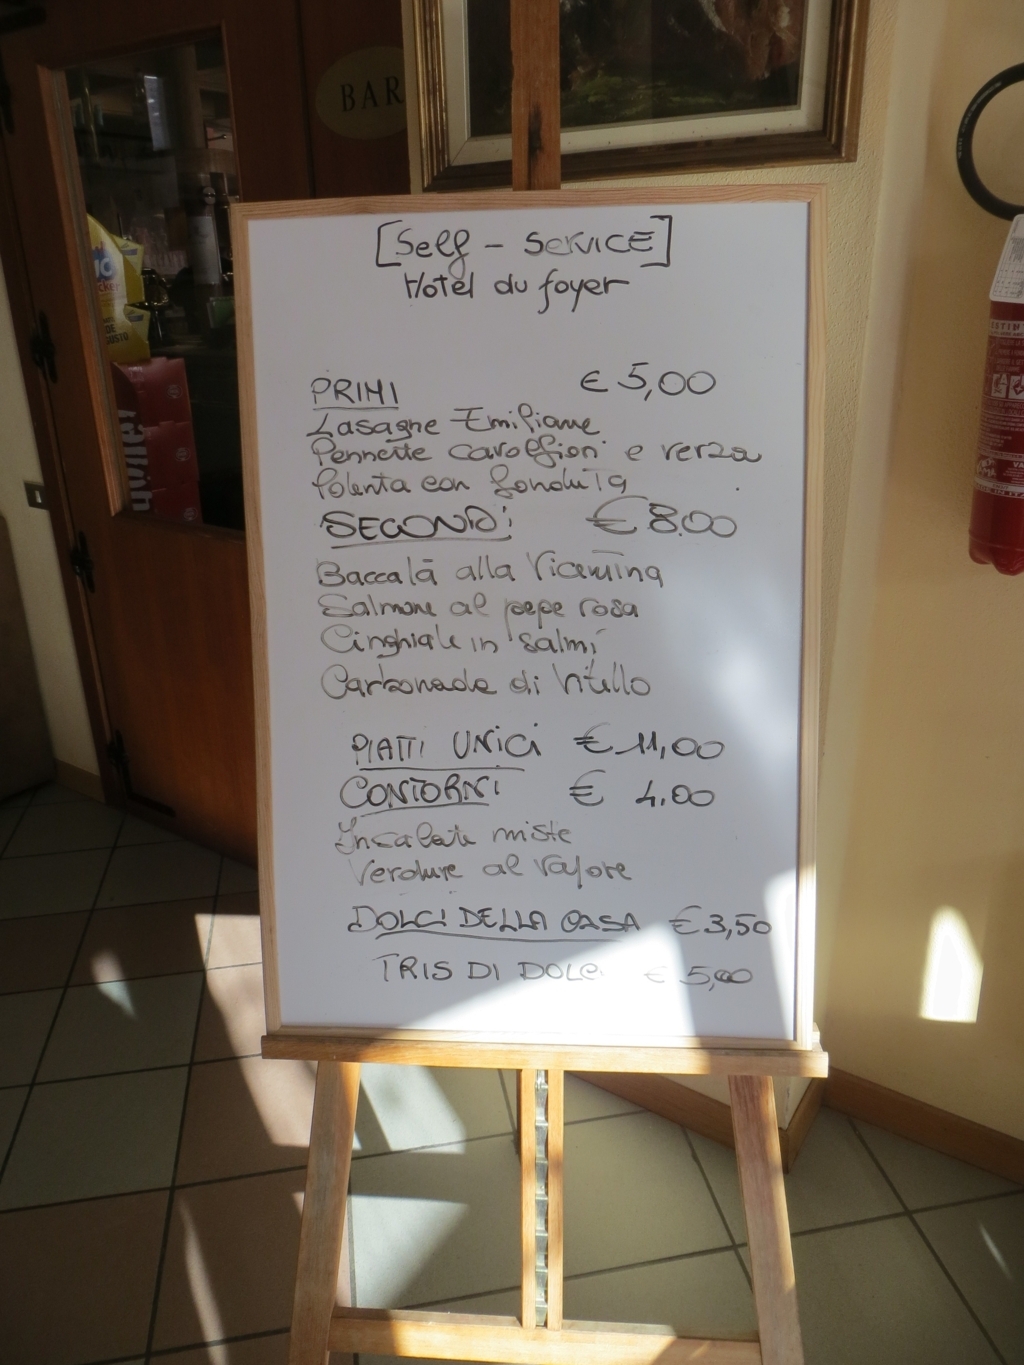 BAR
[Self - SERVICE]
Hotel du foyer
PRIMI € 5,00
Lasagne Emiliane
Pennette cavolfiori e verza
Polenta con fonduta
SECONDI € 8.00
Baccalà alla Vicentina
Salmone al pepe rosa
Cinghiale in salmì
Carbonade di Vitello
PIATTI UNICI € 11,00
CONTORNI € 4.00
Insalate miste
Verdure al vapore
DOLCI DELLA CASA € 3,50
TRIS DI DOLCI € 5,00